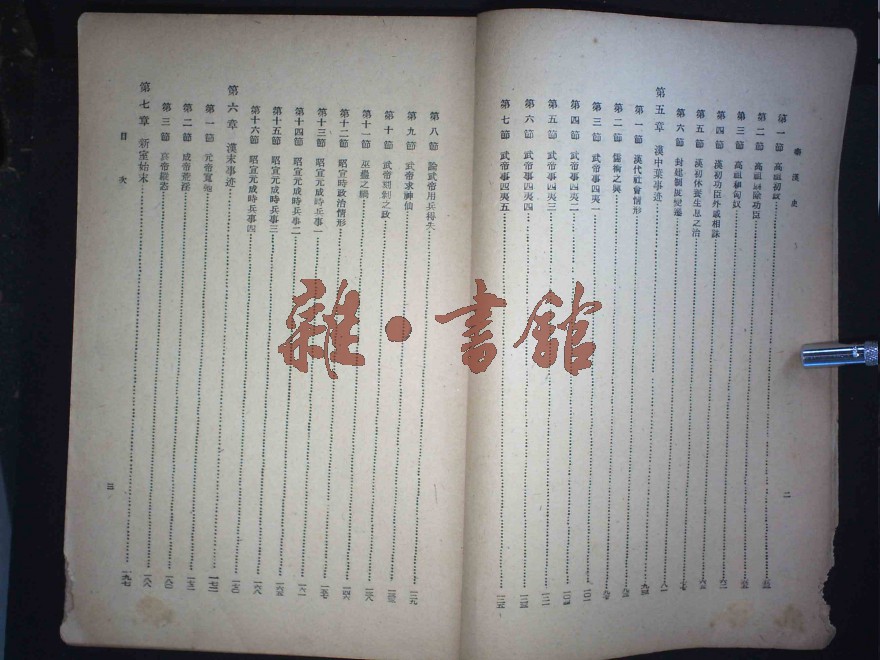 秦漢史
第一節 高祖初政
第二節 高祖翦除功臣
第三節 高祖和匈奴
第四節 漢初功臣外戚相誅
第五節 漢初休養生息之治
第六節 封建制度變遷
第五章 漢中葉事迹
第一節 漢代社會情形
第二節 儒術之興
第三節 武帝事四夷一
第四節 武帝事四夷二
第五節 武帝事四夷三
第六節 武帝事四夷四
第七節 武帝事四夷五
二
第八節 論武帝用兵得失
第九節 武帝求神仙
第十節 武帝刻制之政
第十一節 巫蠱之禍
第十二節 昭宣時政治情形
第十三節 昭宣元成時兵事一
第十四節 昭宣元成時兵事二
第十五節 昭宣元成時兵事三
第十六節 昭宣元成時兵事四
第六章 漢末事迹
第一節 元帝寬弛
第二節 成帝荒淫
第三節 哀帝縱恣
第七章 新室始末
目次
三
雜·書館